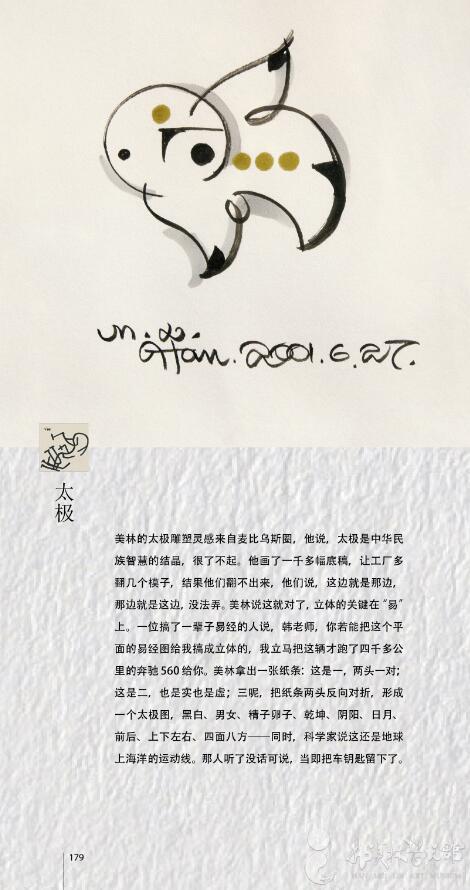 m.l.
Han. 2001.6.27.
太极
美林的太极雕塑灵感来自麦比乌斯圈，他说，太极是中华民
族智慧的结晶，很了不起。他画了一千多幅底稿，让工厂多
翻几个模子，结果他们翻不出来，他们说，这边就是那边，
那边就是这边，没法弄。美林说这就对了，立体的关键在“易”
上。一位搞了一辈子易经的人说，韩老师，你若能把这个平
面的易经图给我搞成立体的，我立马把这辆才跑了四千多公
里的奔驰 560 给你。美林拿出一张纸条：这是一，两头一对；
这是二，也是实也是虚；三呢，把纸条两头反向对折，形成
一个太极图，黑白、男女、精子卵子、乾坤、阴阳、日月、
前后、上下左右、四面八方——同时，科学家说这还是地球
上海洋的运动线。那人听了没话可说，当即把车钥匙留下了。
179
HAN MEI LIN ART MUSEUM